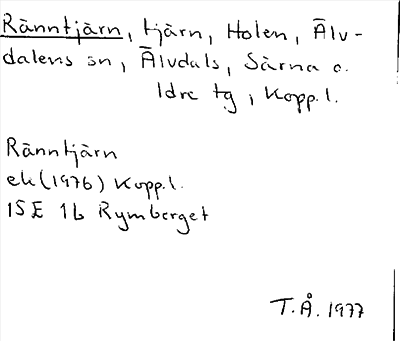 Ränntjärn, tjärn, Holen, Älv-
dalens sn, Älvdals, Särna o.
Idre tg, Kopp.l.
Ränntjärn
ek (1976) Kopp.l.
15E 1b Rymberget
T.Å. 1977